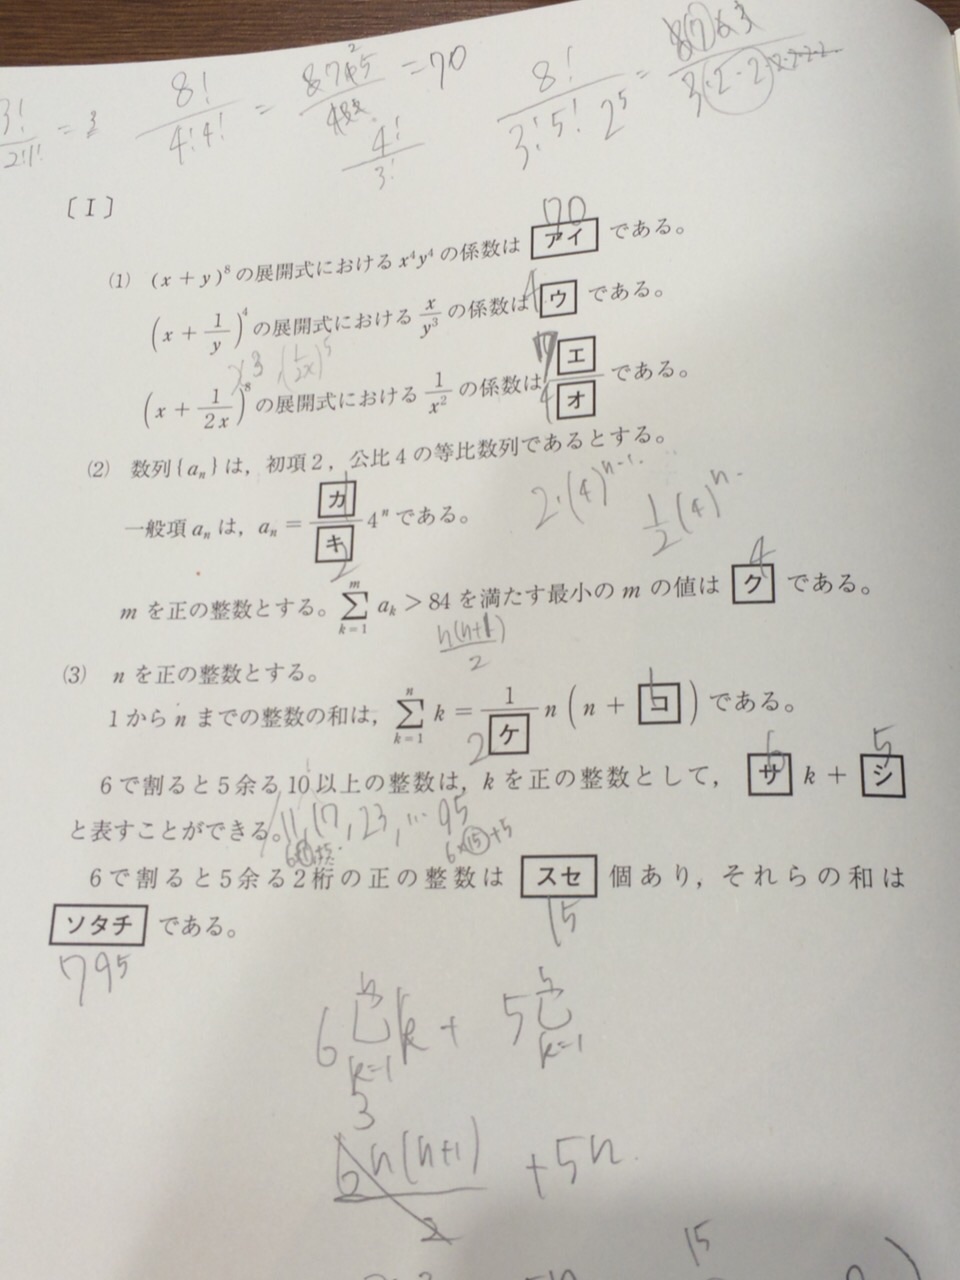 3!/2!1! = 3
8!/4!4! = 8765/48 = 70
4!/3!
8!/3!5!2⁵ = 8763/3·2-2
〔I〕
70
(1) (x + y)⁸ の展開式における x⁴y⁴ の係数は アイ である。
4
(x + 1/y)⁴ の展開式における x/y³ の係数は ウ である。
x³ (1/2x)⁵
(x + 1/2x)⁸ の展開式における 1/x² の係数は エ/オ である。
(2) 数列{aₙ}は，初項2，公比4の等比数列であるとする。
2·(4)ⁿ⁻¹
1/2(4)ⁿ
一般項 aₙ は，aₙ = カ/キ 4ⁿ である。
1
2
4
m を正の整数とする。 ∑(k=1→m) aₖ > 84 を満たす最小の m の値は ク である。
n(n+1)/2
(3) n を正の整数とする。
1から n までの整数の和は，∑(k=1→n) k = 1/ケ n (n + コ) である。
2
1
6 5
6で割ると5余る10以上の整数は，k を正の整数として， サ k + シ
と表すことができる。
11, 17, 23, … 95
6×1+5 6×15+5
6で割ると5余る2桁の正の整数は スセ 個あり，それらの和は
15
ソタチ である。
795
6 ∑(k=1→n) k + 5 ∑(k=1→n)
3
6n(n+1)/2 + 5n
15